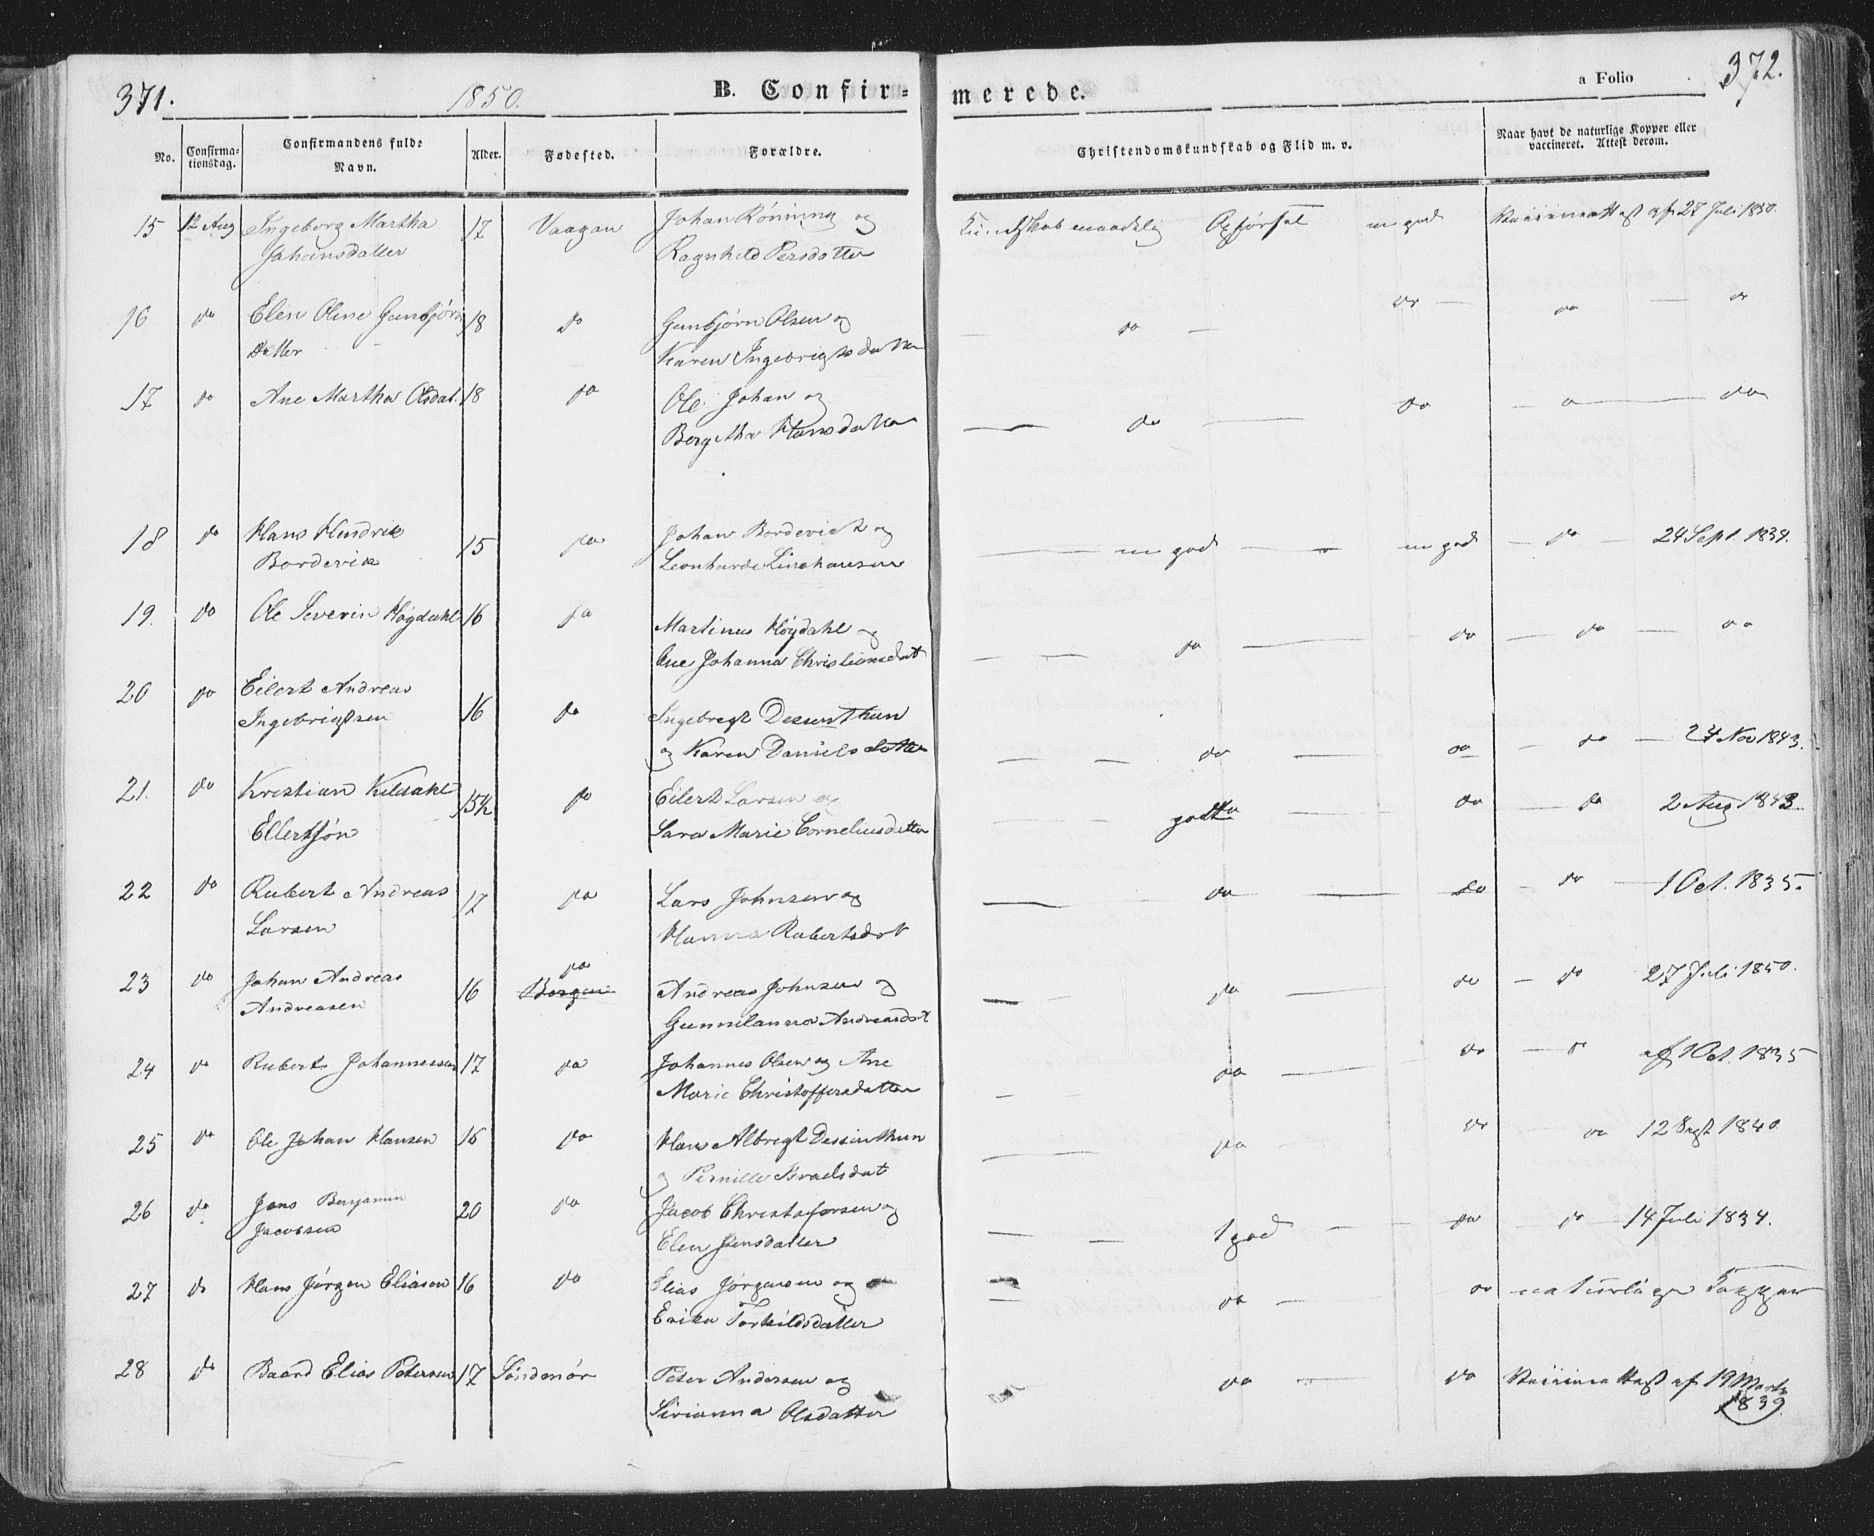 371. 1850. B. Confir= merede. a Folio 372.
No. Confirma-tionsdag. Confirmandens fulde Navn. Alder. Fødested. Forældre. Christendomskundskab og Flid m. v. Naar havt de naturlige Kopper eller vaccineret. Attest derom.
15 12 Aug Ingeborg Martha 17 Vaagan Johan Rönning og Kundskab maadelig Opførsel m god Vaccineattest af 27 Juli 1850.
Johansdatter Ragnhild Persdatter
16 do Elen Oline Gunbjörns 18 do Gunbjörn Olsen og — do — do — do — do
Datter Karen Ingebrigtsdatter
17 do Ane Martha Olsdat. 18 do Ole Johan og — do — do — do — do
Bergitha Hansdatter
18 do Hans Hendrik 15 do Johan Bordevick og — m god — m god — do — 24 Sept. 1834.
Bordevik Leonharde Linehausen
19. do Ole Severin Høgdahl 16 do Martinus Høgdahl og — do — do — do — do
Ane Johanna Christiansdat
20 do Eilert Andreas 16 do Ingebregt Dessinthun — do — do — do — 24 Nov 1843.
Ingebrigtsen og Karen Danielsdatter
21. do Kristian Kildahl 15½ do Eilert Larsen og — godt — do — do 2 Aug 1843.
Ellertsøn Sara Marie Corneliusdatter
22 do Rubert Andreas 17 do Lars Johnsen og — do — do — do — 1 Oct. 1835.
Larsen Hanna Robertsdat
23 do Johan Andreas 16 do Bergen Andreas Johnsen og — do — do — do 27 Juli 1850.
Andreasen Andreasdat
24 do Rubert Johannessen 17 do Johannes Olsen og Ane — do — do — do af 1 Oct. 1835
Marie Christoffersdatter
25 do Ole Johan Hansen 16 do Hans Albregt Dessinthun — do do do 12 Sept 1840
og Pernille Israelsdat
26 do Jens Benjamin 20 do Jacob Christofersen og — — god — do — do — 14 Juli 1834.
Jacobsen Elen Jensdatter
27 do Hans Jörgen Eliasen 16 do Elias Jörgensen og — do — do naturlige Kopper
Erika Torkildsdatter
28 do Baard Elias Petersen 17 Söndmör Peter Andersen og do — do Vaccineattest af 19 Marts
Sirianna Olsdatter 1839